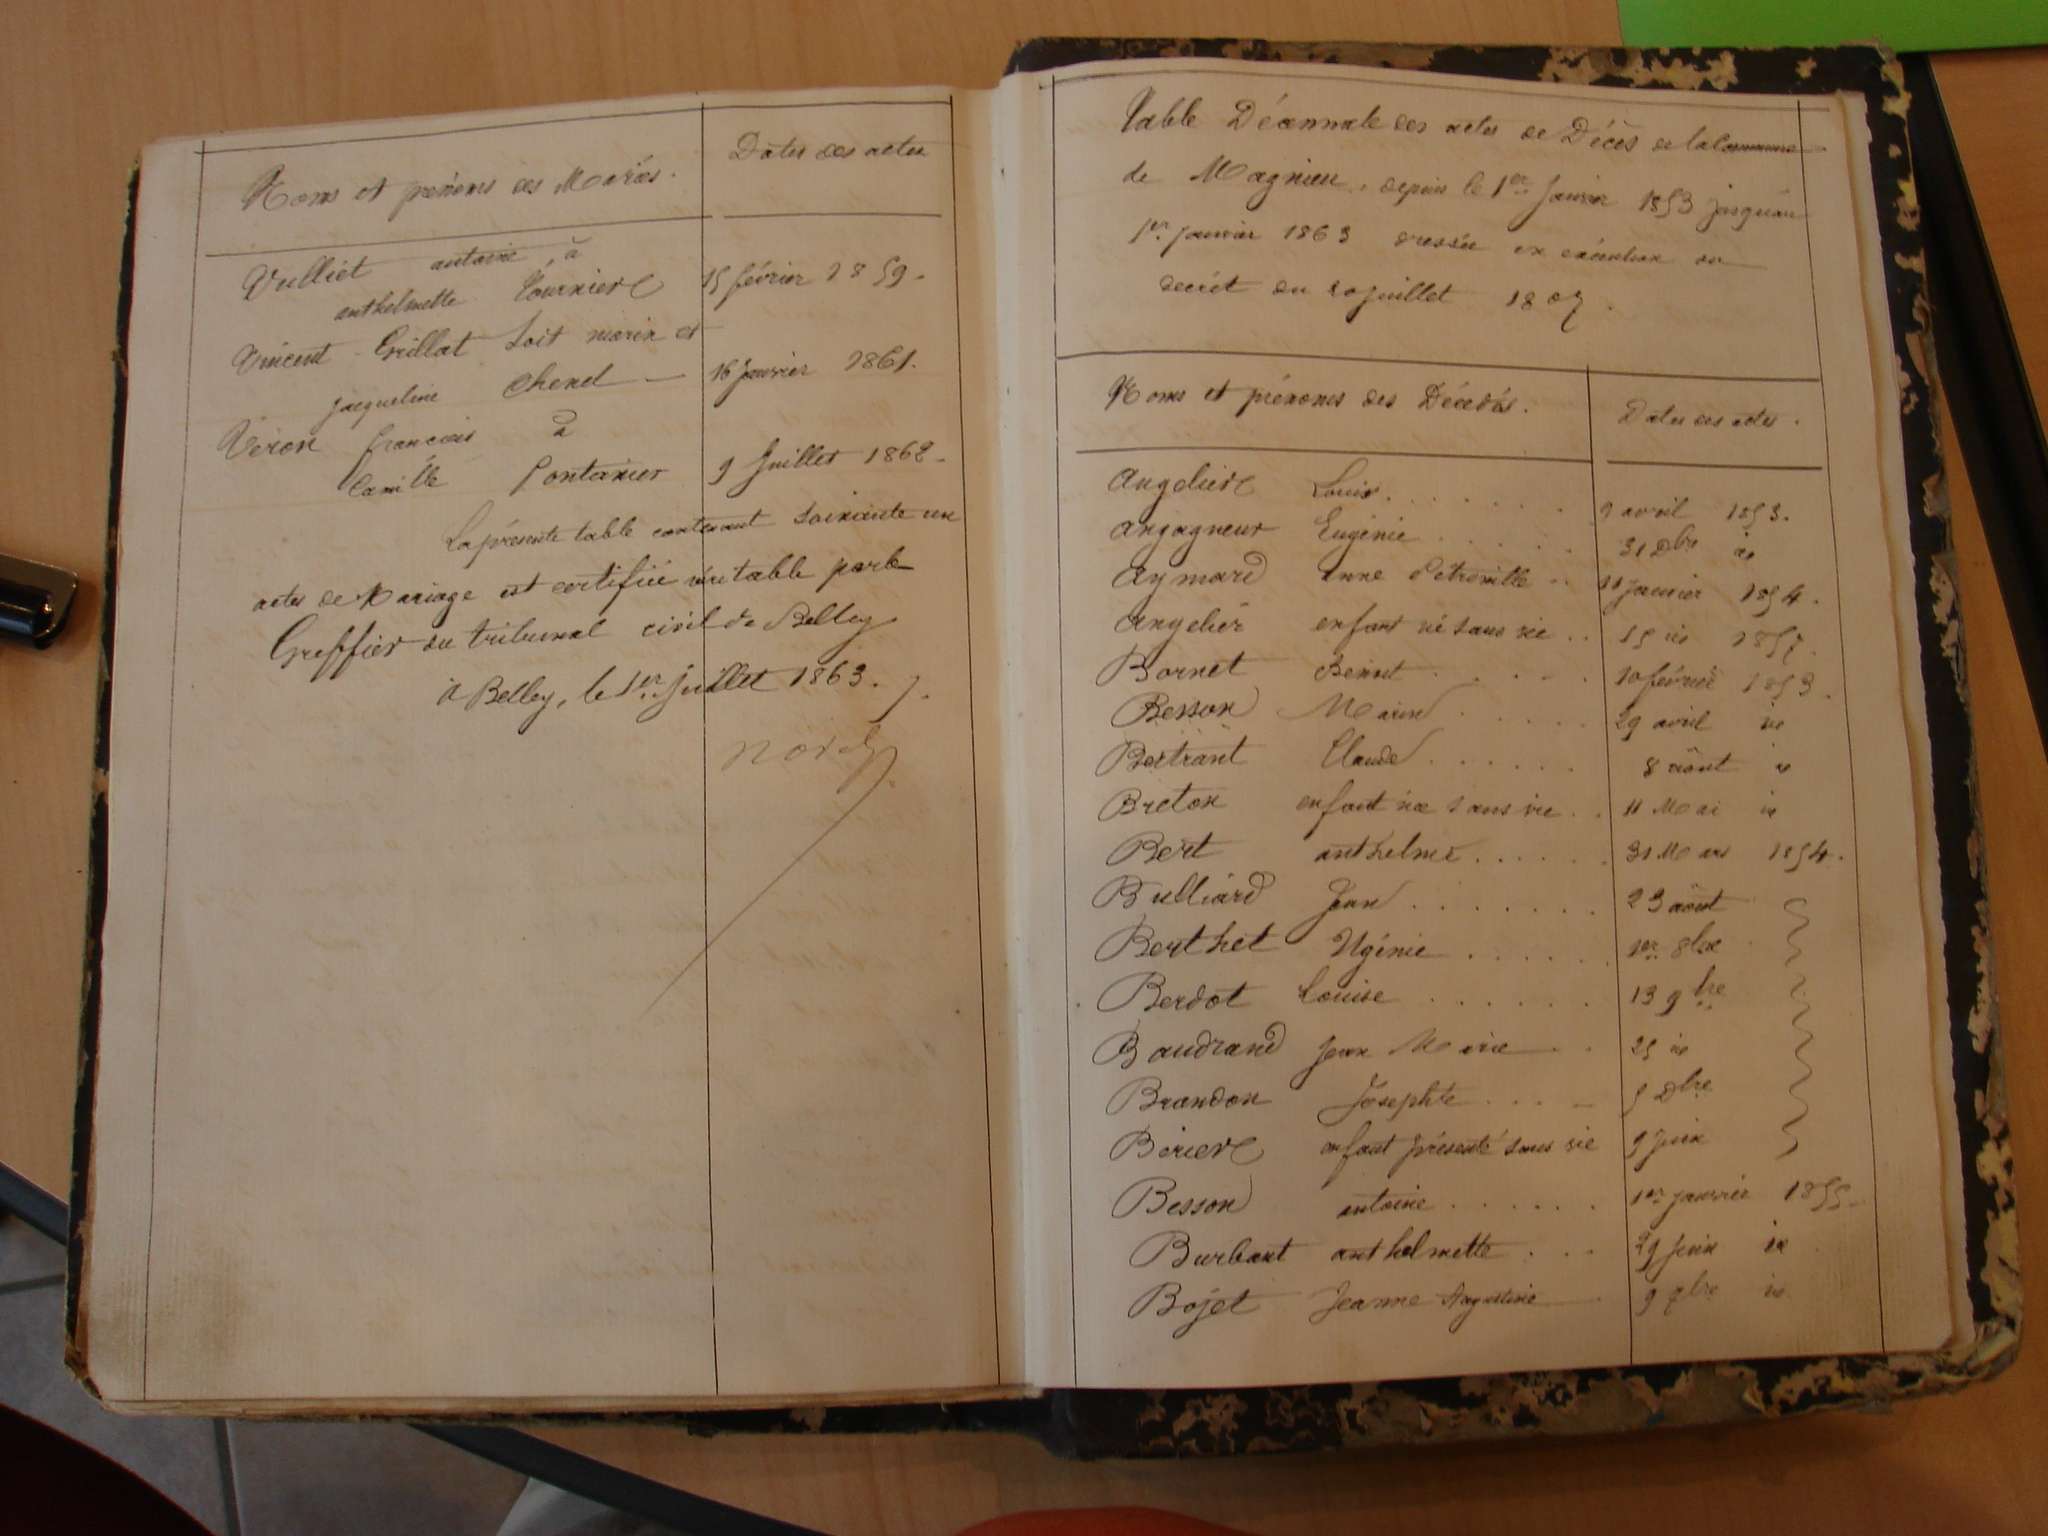 Noms et prénoms des Mariés.
Dates des actes
Vulliet antoine à
anthelmette Tournier 15 février 1859.
Vincent-Grillat Soit marin et
jacqueline Chenel 16 janvier 1861.
Véron françois à
Camille Pontanier 9 Juillet 1862.
La présente table contenant soixante un
actes de Mariage est certifiée véritable par le
Greffier du tribunal civil de Belley
à Belley, le 1er Juillet 1863.
Table Décennale des actes de Décès de la Commune
de Magnieu, depuis le 1er Janvier 1853 jusquau
1er janvier 1863 dressée en exécution du
décret du 20 juillet 1807.
Noms et prénoms des Décédés. Dates des actes.
Angelier Louis 9 avril 1853.
angagneur Eugénie 31 Dbre id
Aymard anne Petronille 11 janvier 1854.
angelier enfant né sans vie 15 id 1857.
Bornet Benoit 10 février 1853.
Besson Marin 29 avril id
Bertrant Claude 8 août id
Breton enfant née sans vie 11 Mai id
Bert anthelme 31 Mars 1854.
Bulliard Jean 23 août
Berthet Ugénie 1er 8bre
Berdot Louise 13 9bre
Baudrand Jean Marie 25 id
Brandon Josephte 5 Dbre
Bérier enfant présenté sans vie 9 juin
Besson antoine 1er janvier 1855
Burbant anthelmette 29 Juin id
Bojet Jeanne Augustine 9 9bre id